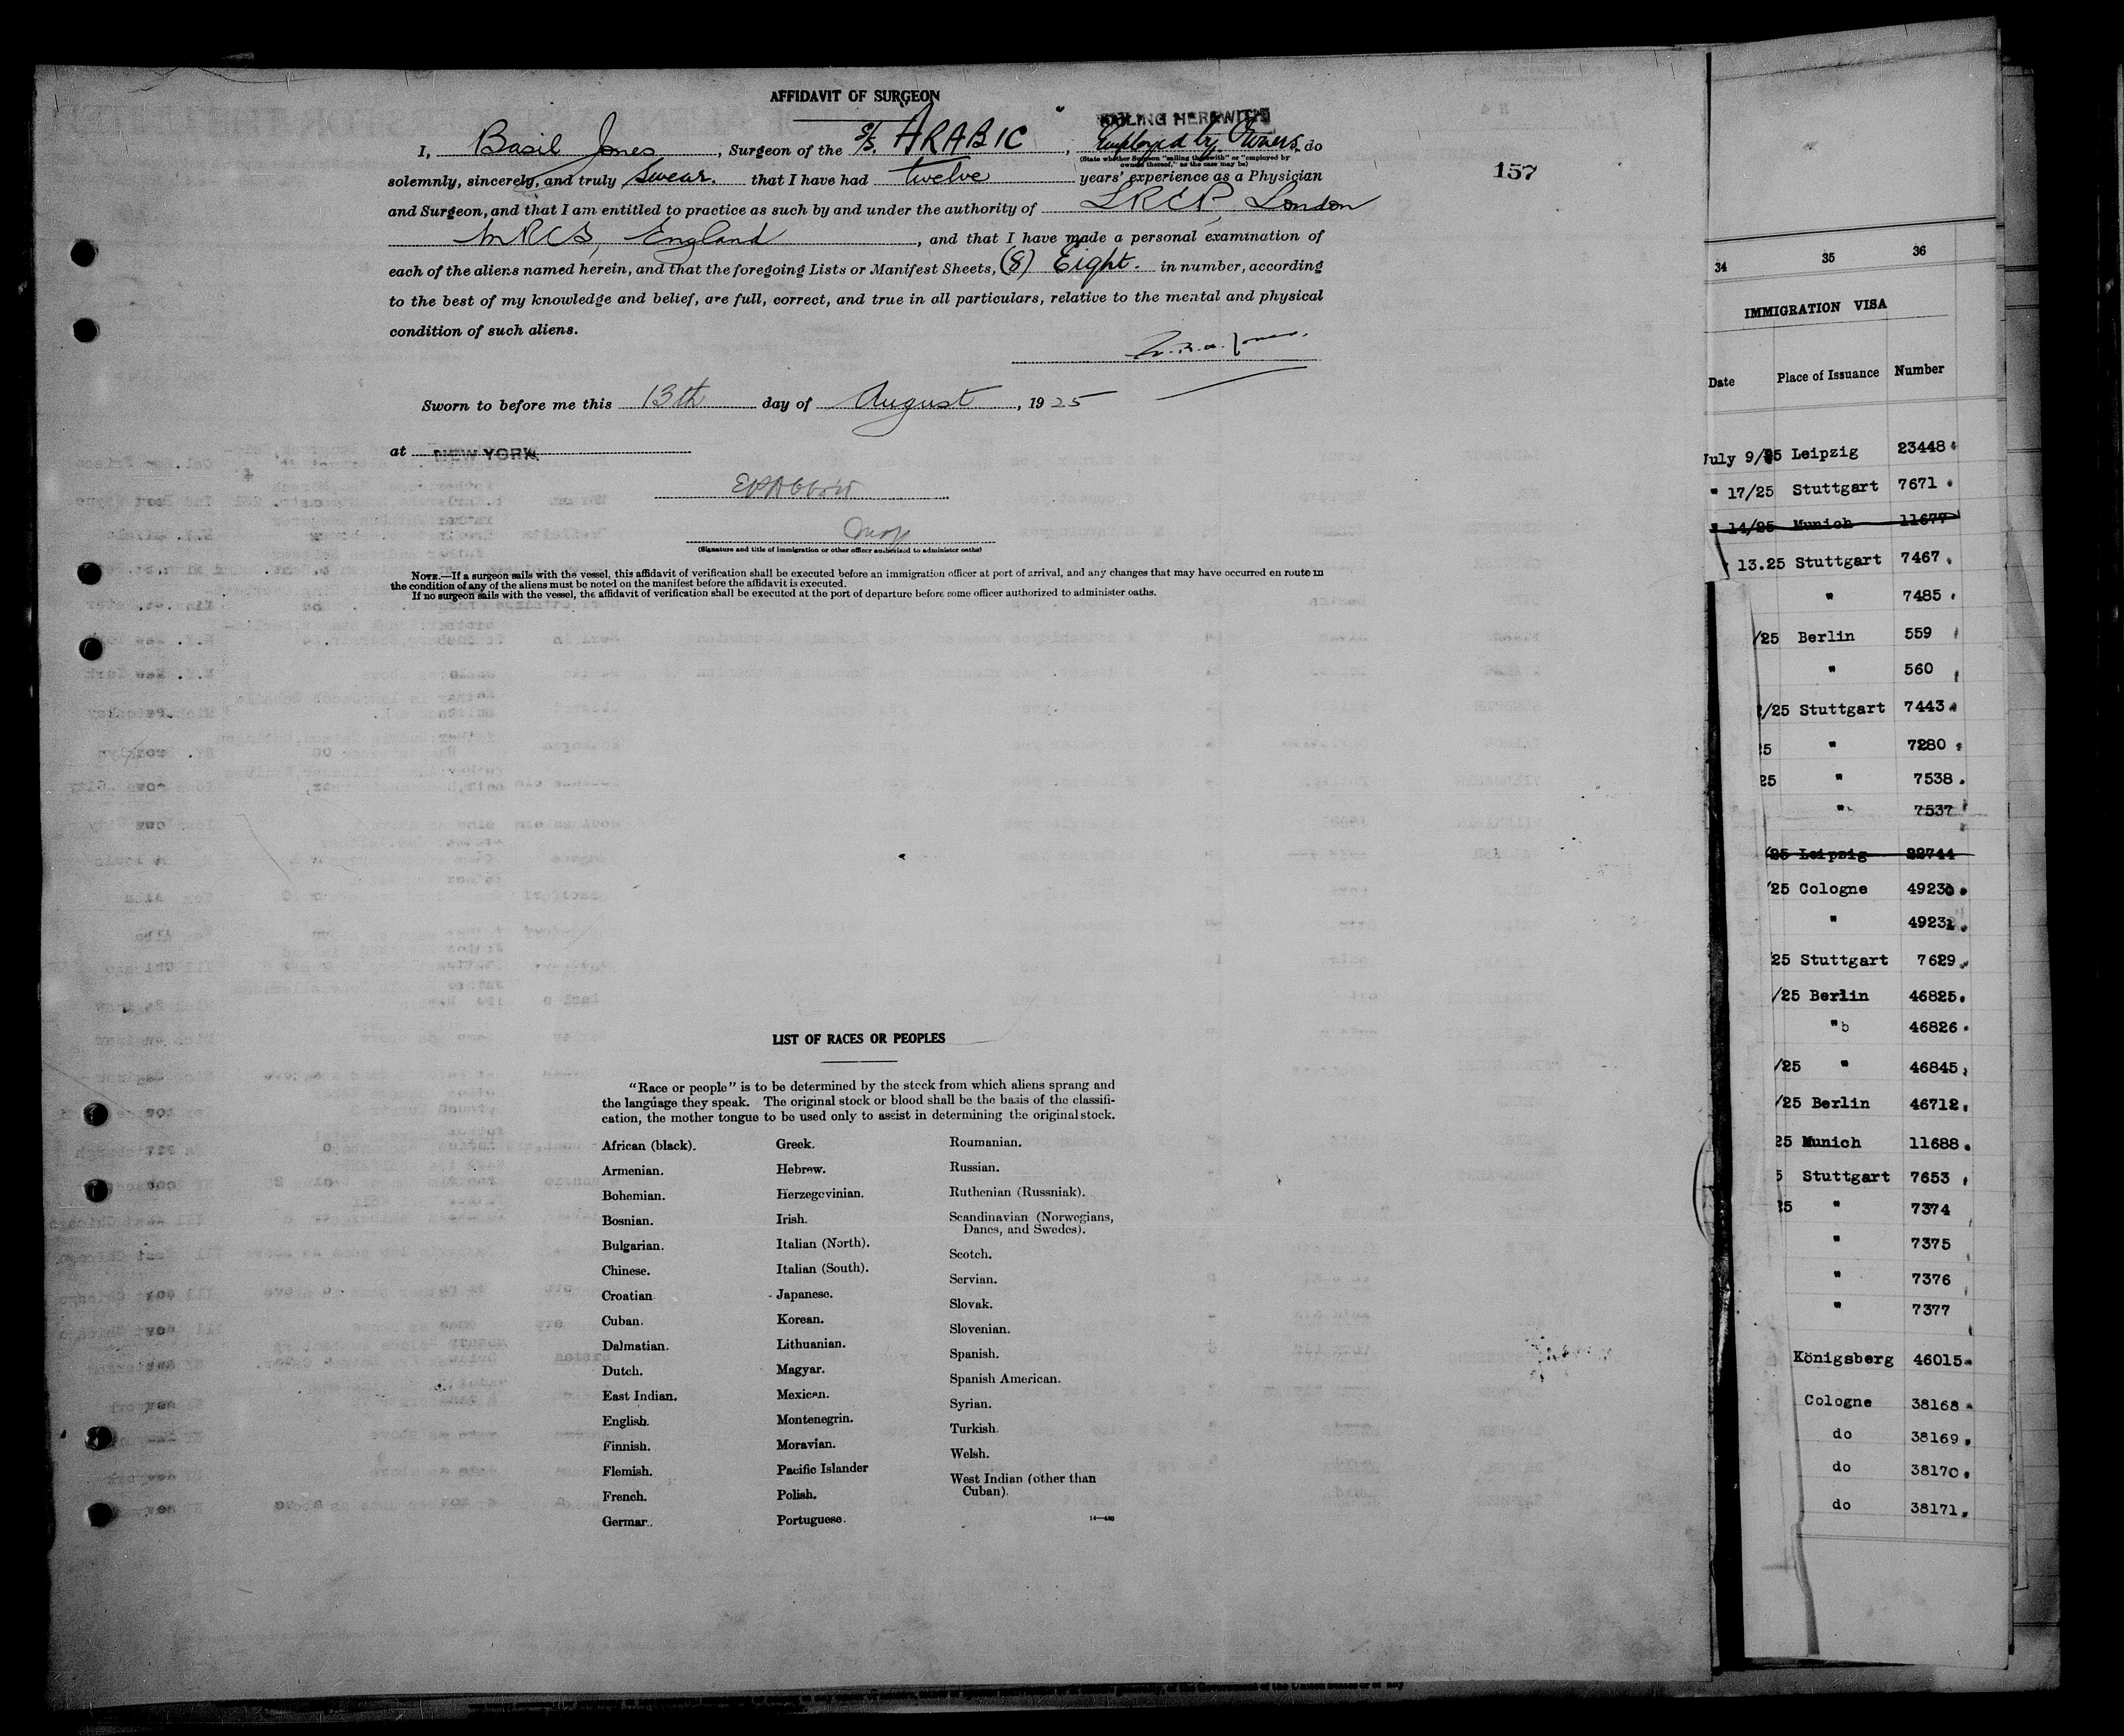 AFFIDAVIT OF SURGEON
SAILING HEREWITH
I, Basil Jones, Surgeon of the S/S. "ARABIC", Employed by Owners. do
(State whether Surgeon "sailing therewith" or "employed by
owners thereof," as the case may be)
solemnly, sincerely, and truly swear. that I have had twelve years' experience as a Physician
and Surgeon, and that I am entitled to practice as such by and under the authority of LRCP, London
MRCS, England, and that I have made a personal examination of
each of the aliens named herein, and that the foregoing Lists or Manifest Sheets, (8) Eight. in number, according
to the best of my knowledge and belief, are full, correct, and true in all particulars, relative to the mental and physical
condition of such aliens.
Jones.
Sworn to before me this 13th day of August, 1925
at NEW YORK
(Signature and title of immigration or other officer authorized to administer oaths)
NOTE.—If a surgeon sails with the vessel, this affidavit of verification shall be executed before an immigration officer at port of arrival, and any changes that may have occurred en route in
the condition of any of the aliens must be noted on the manifest before the affidavit is executed.
If no surgeon sails with the vessel, the affidavit of verification shall be executed at the port of departure before some officer authorized to administer oaths.
157
LIST OF RACES OR PEOPLES
"Race or people" is to be determined by the stock from which aliens sprang and
the language they speak. The original stock or blood shall be the basis of the classifi-
cation, the mother tongue to be used only to assist in determining the original stock.
African (black).
Armenian.
Bohemian.
Bosnian.
Bulgarian.
Chinese.
Croatian
Cuban.
Dalmatian.
Dutch.
East Indian.
English.
Finnish.
Flemish.
French.
German.
Greek.
Hebrew.
Herzegovinian.
Irish.
Italian (North).
Italian (South).
Japanese.
Korean.
Lithuanian.
Magyar.
Mexican.
Montenegrin.
Moravian.
Pacific Islander
Polish.
Portuguese.
Roumanian.
Russian.
Ruthenian (Russniak).
Scandinavian (Norwegians,
Danes, and Swedes).
Scotch.
Servian.
Slovak.
Slovenian.
Spanish.
Spanish American.
Syrian.
Turkish.
Welsh.
West Indian (other than
Cuban).
34 35 36
IMMIGRATION VISA
Date Place of Issuance Number
July 9/25 Leipzig 23448
" 17/25 Stuttgart 7671
" 14/25 Munich 11677
13.25 Stuttgart 7467
" 7485
/25 Berlin 559
" 560
/25 Stuttgart 7443
5 " 7280
25 " 7538
" 7537
/25 Leipzig 22744
/25 Cologne 49230
" 49231
25 Stuttgart 7629
/25 Berlin 46825
" 46826
/25 " 46845
/25 Berlin 46712
25 Munich 11688
5 Stuttgart 7653
25 " 7374
" 7375
" 7376
" 7377
Königsberg 46015
Cologne 38168
do 38169
do 38170
do 38171